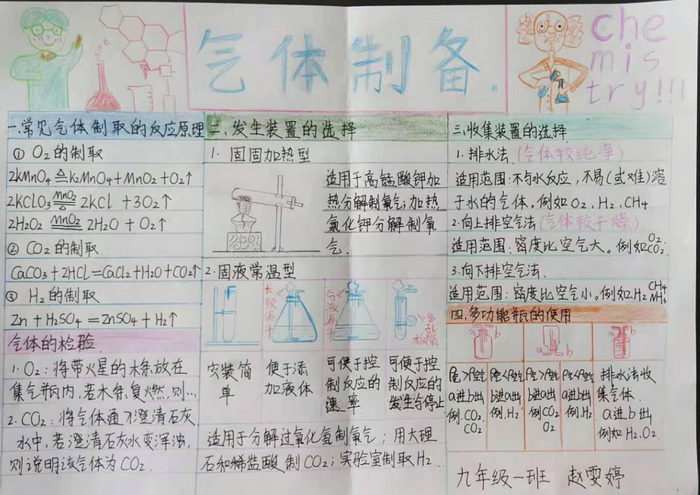 气体制备.
che
mis
try!!!
一.常见气体制取的反应原理
① O₂的制取
2KMnO₄ ≜ K₂MnO₄+MnO₂+O₂↑
2KClO₃ MnO₂ 2KCl +3O₂↑
2H₂O₂ MnO₂ 2H₂O + O₂↑
② CO₂的制取
CaCO₃+2HCl=CaCl₂+H₂O+CO₂↑
③ H₂的制取
Zn + H₂SO₄=ZnSO₄+H₂↑
气体的检验
1. O₂: 将带火星的木条放在
集气瓶内,若木条复燃,则…
2. CO₂: 将气体通入澄清石灰
水中,若澄清石灰水变浑浊,
则说明该气体为CO₂.
二.发生装置的选择
1. 固固加热型
适用于高锰酸钾加
热分解制氧气;加热
氯化钾分解制氧
气.
2.固液常温型
长颈漏斗
安装简
单
便于添
加液体
可便于控
制反应的
速率
可便于控
制反应的
发生与停止
适用于分解过氧化氢制氧气;用大理
石和稀盐酸制CO₂;实验室制取H₂.
三.收集装置的选择
1.排水法(气体较纯净)
适用范围:不与水反应,不易(或难)溶
于水的气体.例如O₂.H₂.CH₄
2.向上排空气法(气体较干燥)
适用范围:密度比空气大。例如O₂ CO₂
3.向下排空气法.
适用范围:密度比空气小。例如H₂ CH₄ NH₃
四.多功能瓶的使用
a进b出
例CO₂
b进a出
例H₂
b进a出
例CO₂
O₂
a进b出
例H₂
排水法收
集气体.
a进b出
例如H₂.O₂
九年级一班 赵雯婷